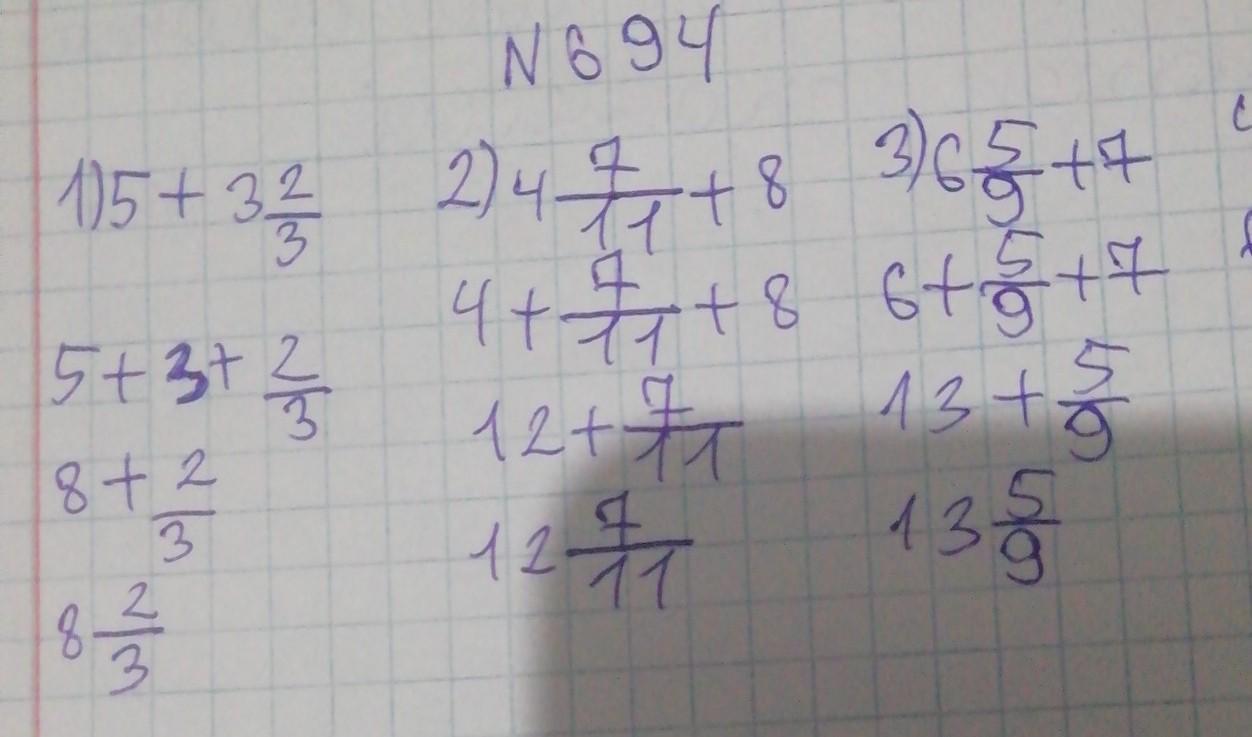 N 694
1) 5 + 3 2/3
5 + 3 + 2/3
8 + 2/3
8 2/3
2) 4 7/11 + 8
4 + 7/11 + 8
12 + 7/11
12 7/11
3) 6 5/9 + 7
6 + 5/9 + 7
13 + 5/9
13 5/9